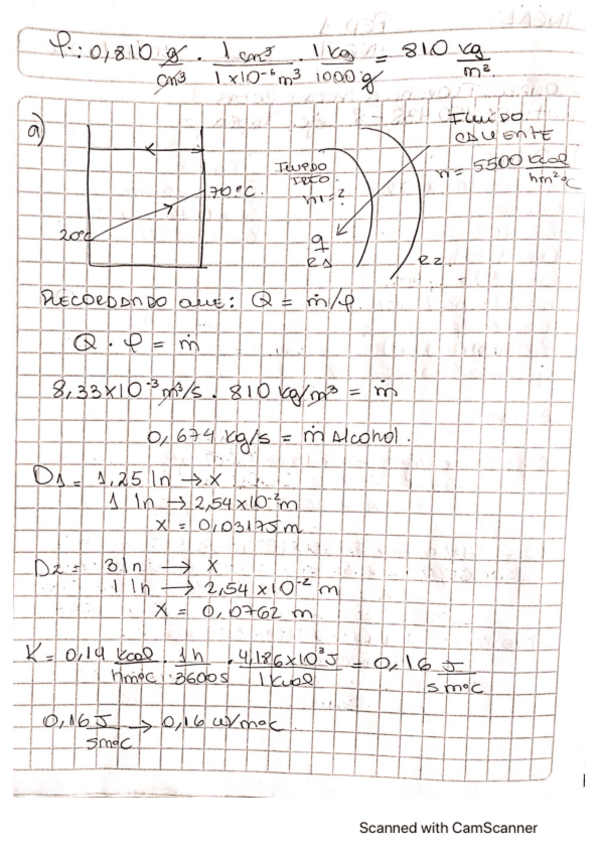 φ: 0,810 g/cm³ · 1 cm³/1x10⁻⁶m³ · 1 kg/1000 g = 810 kg/m³.
a)
FLUIDO CALIENTE
h = 5500 kcal/hm²°C
FLUIDO FRIO.
h1=?
70°C.
20°C
q
R1
R2.
RECORDANDO QUE: Q = ṁ/φ.
Q · φ = ṁ
8,33x10⁻³m³/s . 810 kg/m³ = ṁ
0,674 kg/s = ṁ Alcohol.
D1 = 1,25 In → x
1 In → 2,54x10⁻²m
x = 0,03175m
D2 = 3 In → x
1 In → 2,54 x10⁻² m
x = 0,0762 m
K = 0,14 kcal/hm°C · 1h/3600s · 4,186x10³J/1kcal = 0,16 J/sm°C
0,16 J/sm°C → 0,16 w/m°C
Scanned with CamScanner